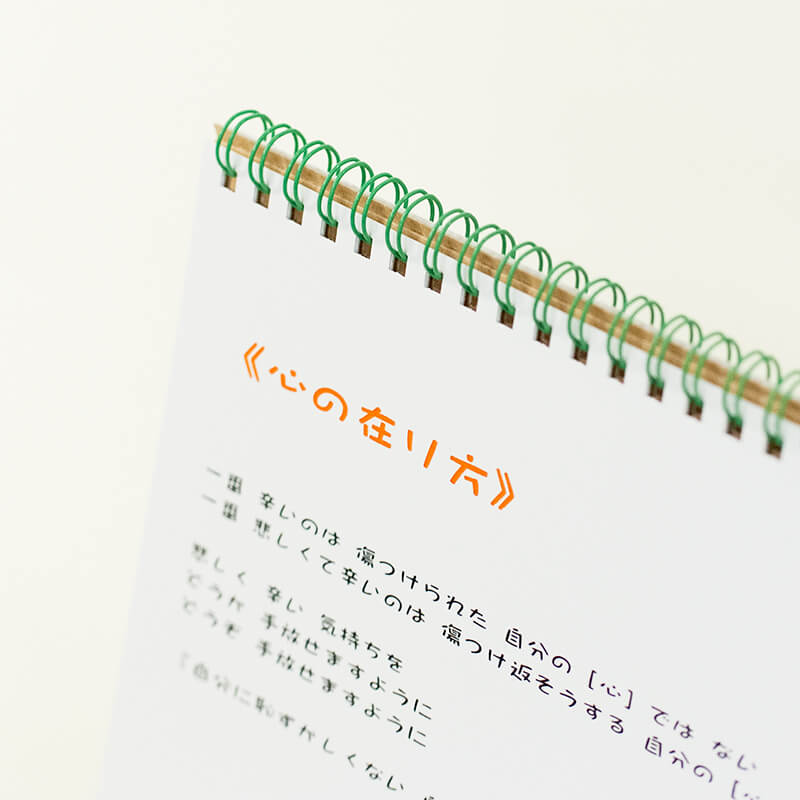 《心の在り方》
一番 辛いのは 傷つけられた 自分の [心] では ない
一番 悲しくて辛いのは 傷つけ返そうする 自分の [心
悲しく 辛い 気持ちを
どうか 手放せますように
どうぞ 手放せますように
「自分に恥ずかしくない